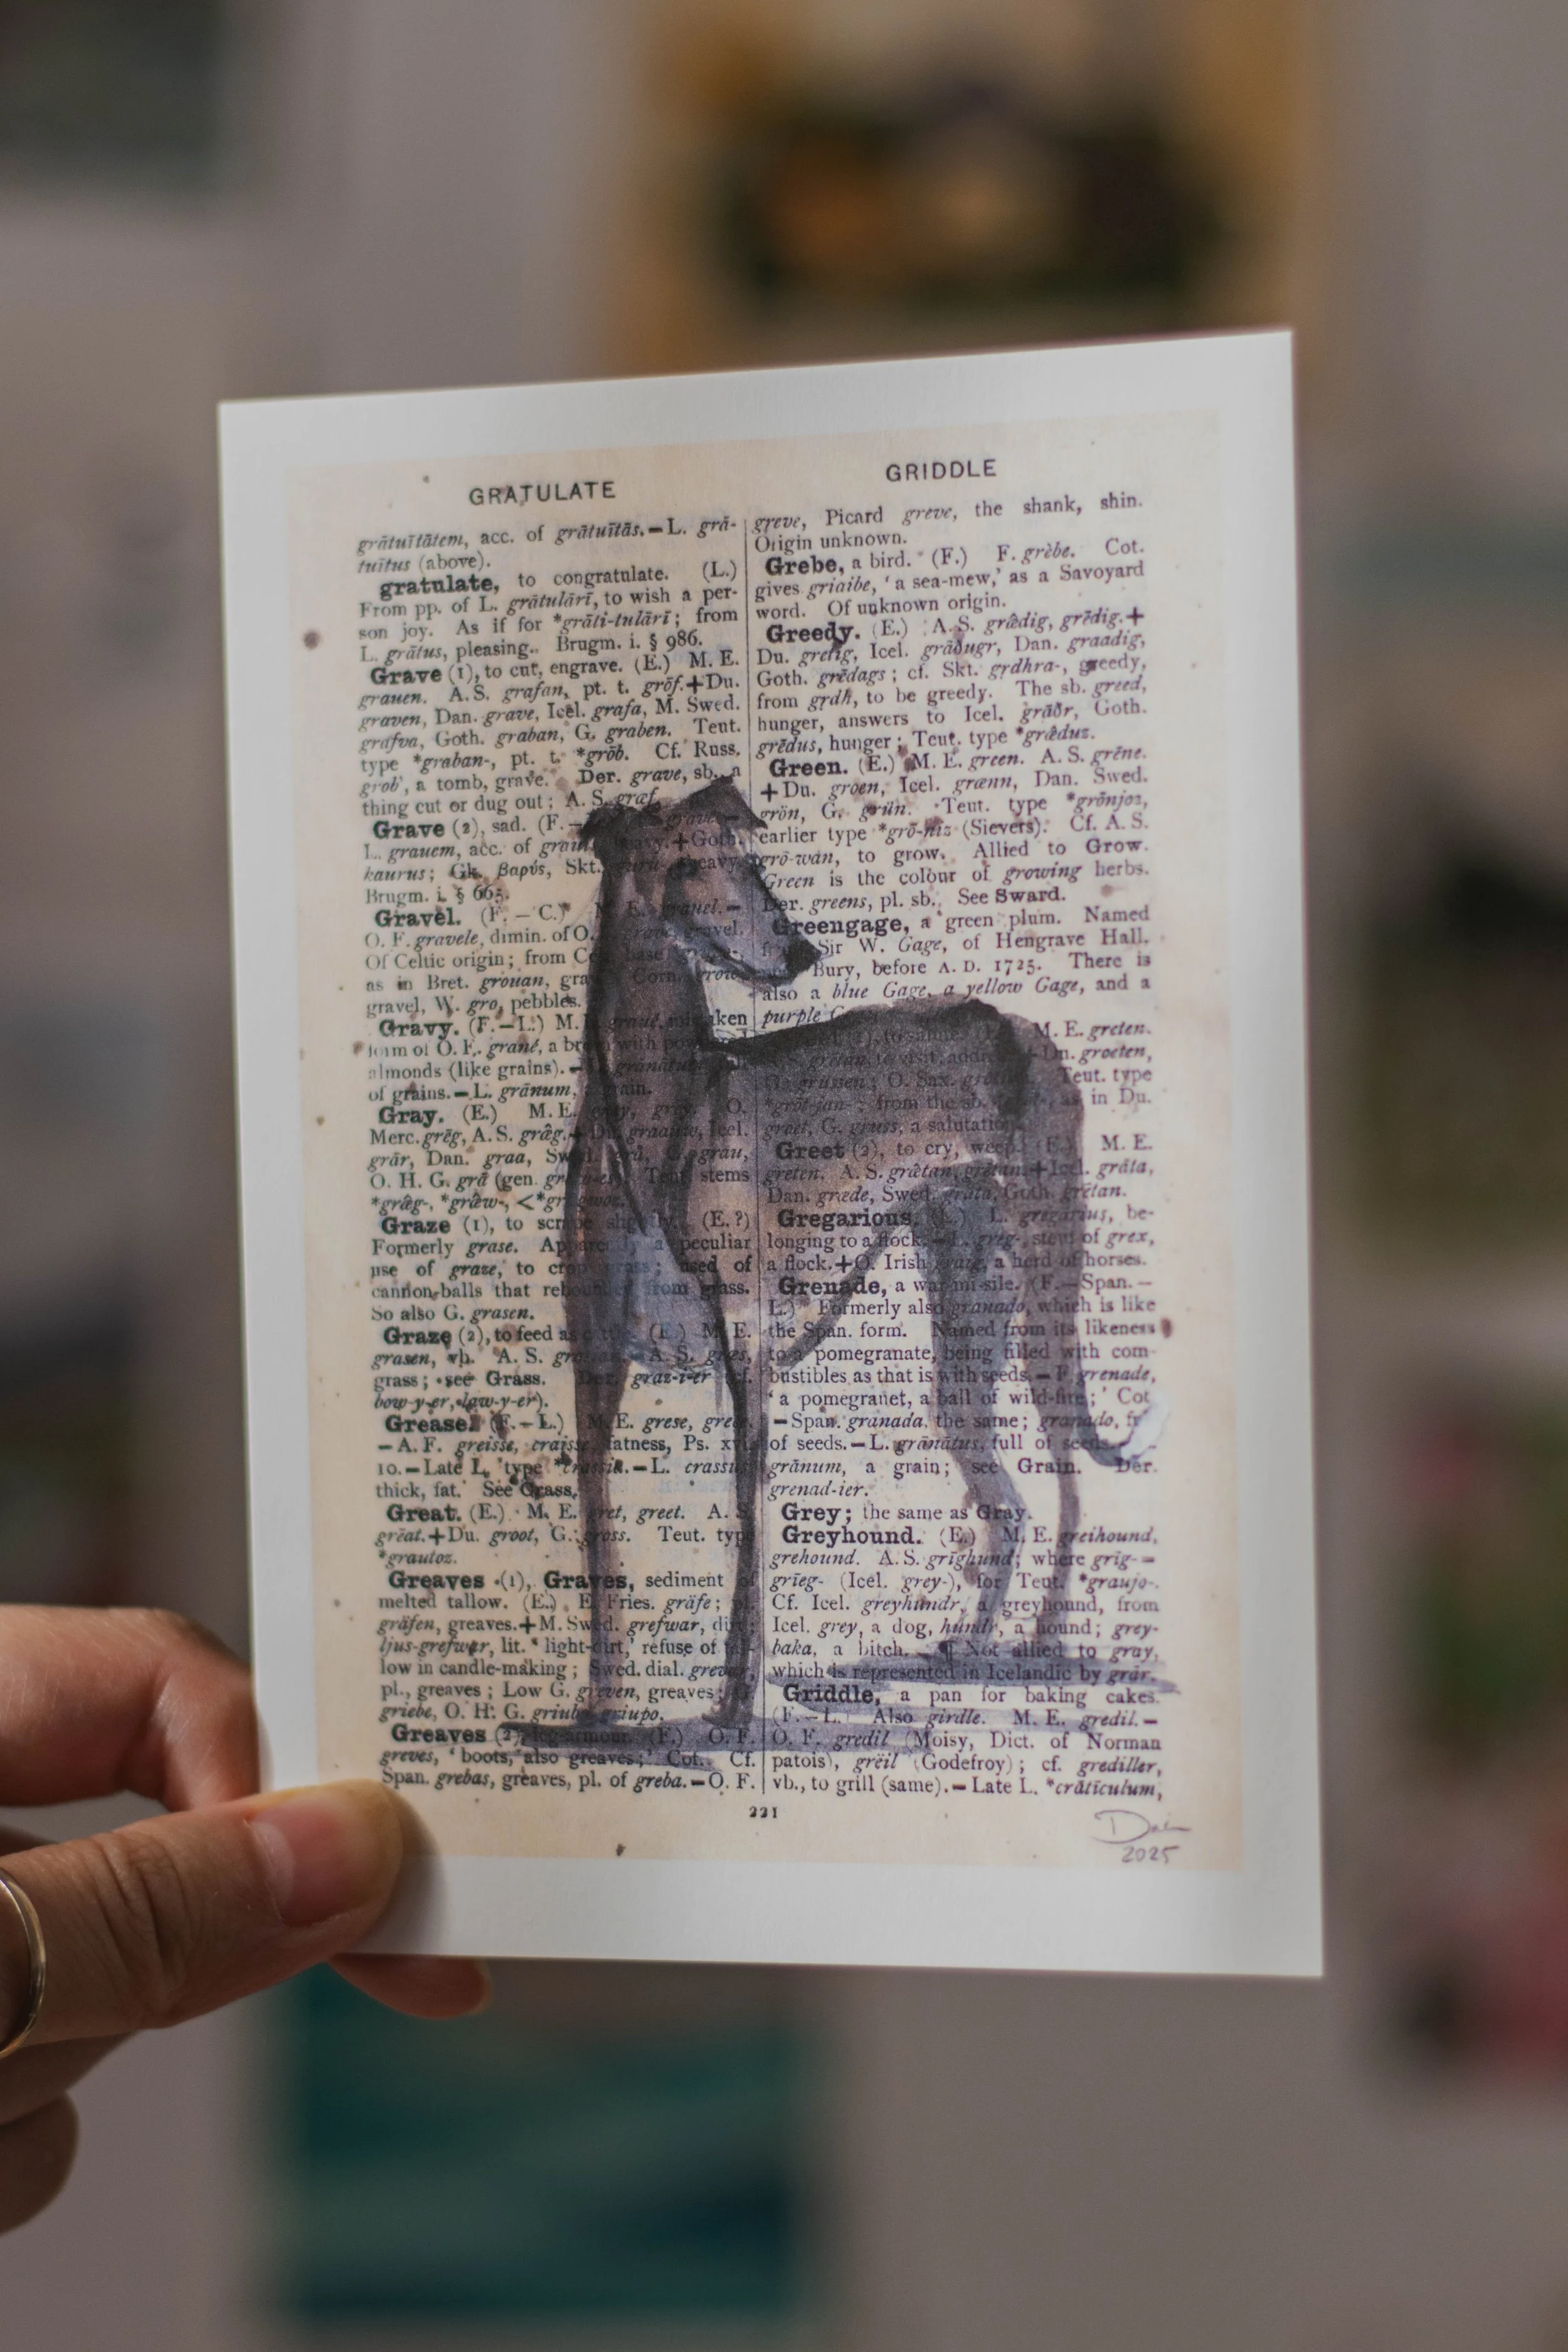 GRATULATE
grātuītātem, acc. of grātuītās.–L. grā-
tuītus (above).
gratulate, to congratulate. (L.)
From pp. of L. grātulārī, to wish a per-
son joy. As if for *grāti-tulārī; from
L. grātus, pleasing. Brugm. i. § 986.
Grave (1), to cut, engrave. (E.) M. E.
grauen. A.S. grafan, pt. t. grōf.+Du.
graven, Dan. grave, Icel. grafa, M. Swed.
grafva, Goth. graban, G. graben. Teut.
type *graban-, pt. t. *grōb. Cf. Russ.
grob', a tomb, grave. Der. grave, sb., a
thing cut or dug out; A. S. græf.
Grave (2), sad. (F.–
L. grauem, acc. of heavy.+Goth.
kaurus; Gk. βαρύς, Skt. guru-, heavy.
Brugm. i. § 665.
Gravel. (F.–C.) M. E. grauel.–
O. F. gravele, dimin. of O. gravel.
Of Celtic origin; from base
as in Bret. grouan, Corn. grow
gravel, W. gro, pebbles.
Gravy. (F.–L.) M. graué,
form of O. F. grané, a with
almonds (like grains).–
of grains.–L. grānum, grain.
Gray. (E.) M. E. gray, grey. O.
Merc. grēg, A. S. grǣg.+Du. graauw, Icel.
grār, Dan. graa, Swed. grå, G. grau,
O. H. G. grā (gen. Teut. stems
*grǣg-, *grǣw-, <*
Graze (1), to scrape slightly. (E.?)
Formerly grase. Apparently a peculiar
use of graze, to crop grass; used of
cannon-balls that rebounded from grass.
So also G. grasen.
Graze (2), to feed (E.) M. E.
grasen, vb. A. S. A. S. græs,
grass; see Grass. Der. graz-i-er (cf.
bow-y-er, law-y-er).
Grease. (F.–L.) M. E. grese,
–A. F. greisse, craisse, fatness, Ps.
10.–Late L. type *crassia.–L. crassus,
thick, fat. See Crass.
Great. (E.) M. E. gret, greet. A. S.
grēat.+Du. groot, G. gross. Teut. type
*grautoz.
Greaves (1), Graves, sediment of
melted tallow. (E.) E. Fries. gräfe; pl.
gräfen, greaves.+M. Swed. grefwar,
ljus-grefwar, lit. 'light-dirt,' refuse of
low in candle-making; Swed. dial. grevar,
pl., greaves; Low G. greven, greaves;
griebe, O. H. G. griubo, griupo.
Greaves (2), leg-armour. (F.) O. F.
greves, 'boots, also greaves;' Cot. Cf.
Span. grebas, greaves, pl. of greba.–O. F.
GRIDDLE
greve, Picard greve, the shank, shin.
Origin unknown.
Grebe, a bird. (F.) F. grèbe. Cot.
gives griaibe, 'a sea-mew,' as a Savoyard
word. Of unknown origin.
Greedy. (E.) A. S. grǣdig, grēdig.+
Du. gretig, Icel. grāðugr, Dan. graadig,
Goth. grēdags; cf. Skt. grdhra-, greedy,
from grdh, to be greedy. The sb. greed,
hunger, answers to Icel. grāðr, Goth.
grēdus, hunger; Teut. type *grǣduz.
Green. (E.) M. E. green. A. S. grēne.
+Du. groen, Icel. grænn, Dan. Swed.
grön, G. grün. Teut. type *grōnjoz,
earlier type *grō-niz (Sievers). Cf. A. S.
grō-wan, to grow. Allied to Grow.
Green is the colour of growing herbs.
Der. greens, pl. sb. See Sward.
Greengage, a green plum. Named
from Sir W. Gage, of Hengrave Hall.
Bury, before A. D. 1725. There is
also a blue Gage, a yellow Gage, and a
purple
to salute. M. E. greten.
grētan, to visit, address.+Du. groeten,
G. grüssen; O. Sax. Teut. type
*grōt-jan-; from the sb. as in Du.
groet, G. gruss, a salutation.
Greet (2), to cry, weep. (E.) M. E.
greten. A. S. grǣtan, grētan.+Icel. grāta,
Dan. græde, Swed. gråta, Goth. grētan.
Gregarious. (L.) L. gregārius, be-
longing to a flock.–L. greg-, stem of grex,
a flock.+O. Irish graig, a herd of horses.
Grenade, a war-missile. (F.–Span.–
L.) Formerly also granado, which is like
the Span. form. Named from its likeness
to a pomegranate, being filled with com-
bustibles as that is with seeds.–F. grenade,
'a pomegranet, a ball of wild-fire;' Cot
–Span. granada, the same; granado,
of seeds.–L. grānātus, full of seeds.
grānum, a grain; see Grain. Der.
grenad-ier.
Grey; the same as Gray.
Greyhound. (E.) M. E. greihound,
grehound. A. S. grīghund; where grīg-=
grīeg- (Icel. grey-), for Teut. *graujo-.
Cf. Icel. greyhundr, a greyhound, from
Icel. grey, a dog, hundr, a hound; grey-
baka, a bitch. ¶ Not allied to gray,
which is represented in Icelandic by grār.
Griddle, a pan for baking cakes.
(F.–L.) Also girdle. M. E. gredil.–
O. F. gredil (Moisy, Dict. of Norman
patois), greïl (Godefroy); cf. grediller,
vb., to grill (same).–Late L. *crātīculum,
221
2025